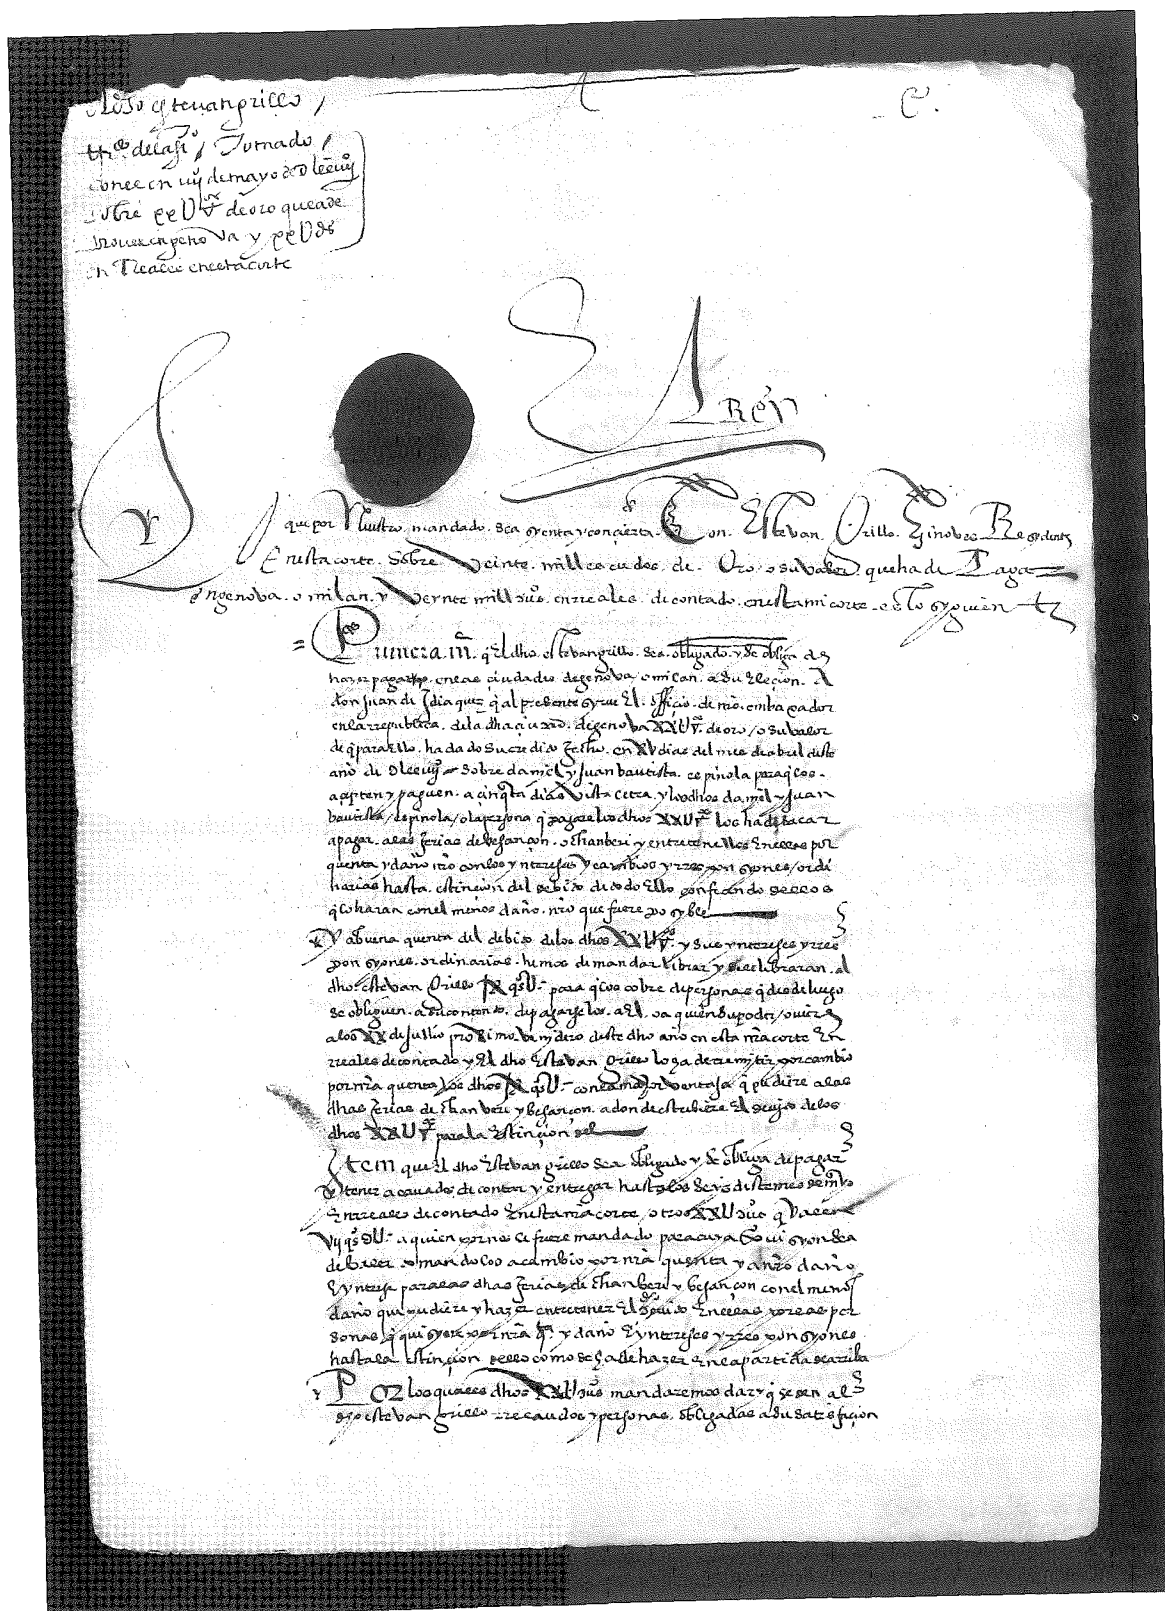 estevan grillo
del assi.to Tomado
con el en iiij de mayo de Dleeviij
sobre xxU de oro que a de
en genova y xxU ds
en Reales en esta corte
El Rey
que por Nuestro mandado sea syenta y concierta Con Estevan Grillo Ginoves Resydente
En esta corte Sobre veinte mill escudos de Oro o su valor que ha de Pagar
en genova o milan y Veynte mill dus en reales de contado en esta mi corte es lo syguiente
Primera m q el dho estevan grillo sea obligado y se obliga de
hazer pagar en las ciudades de genova o milan a su Elecion A
don Juan de Idiaquez q al presente syrve El officio de nro embaxador
en la republica de la dha ciudad de genova XXU de oro / o su valor
de q para ello ha dado su credito fecho en XV dias del mes de abril deste
año de Dleeviij sobre daniel y Juan bautista espinola para q los
acepten y paguen a cinqta dias vista letra y los dhos daniel y Juan
bautista / espinola / o la persona q pagare los dhos XXU los ha de sacar
a pagar a las ferias de besançon o chanberi y entretenellos En ellas por
quenta y daño nro con los yntereses y cambios y rresponsyones / ordi
narias hasta estincion del debito de todo Ello confiando dellos
q lo haran con el menos daño nro que fuere posyble
Y a buena quenta del debito de los dhos XXU y sus yntereses y rres
ponsyones ordinarias hemos de mandar librar y se le libraran al
dho estevan Grillo IX qsU para q los cobre de personas q desde luego
se obliguen a su contento de pagarselos a El o a quien su poder / oviere
a los XX de jullio proximo venidero deste dho año en esta nra corte En
rreales de contado y El dho Estevan Grillo lo ha de rremitir por cambio
por nra quenta los dhos IX qsU con la mayor ventaja q pudiere a las
dhas ferias de chanberi y besançon a donde estubiere El devito de los
dhos XXU para la Estincion del
Item que El dho Estevan grillo sea obligado y se obliga de pagar
y tener acavados de contar y entregar hasta los seys deste mes de mayo
En rreales de contado En esta nra corte / otros XXU dus q valen
vij qs DU a quien por nos le fuere mandado para cuya
mandolos a cambio por nra quenta y a nro daño
E yntrese para las dhas ferias de chanberi y besançon con el menos
daño que pudiere y hazer entretener El devido En ellas por las per
sonas q quisyere por nra qta y daño E yntereses y rresponsyones
hasta la Estincion dello como se ha de hazer En la partida de arriba
Por los quales dhos XXU dus mandaremos dar y q se den al
dho estevan grillo rrecaudos y personas obligadas a su satisfacion